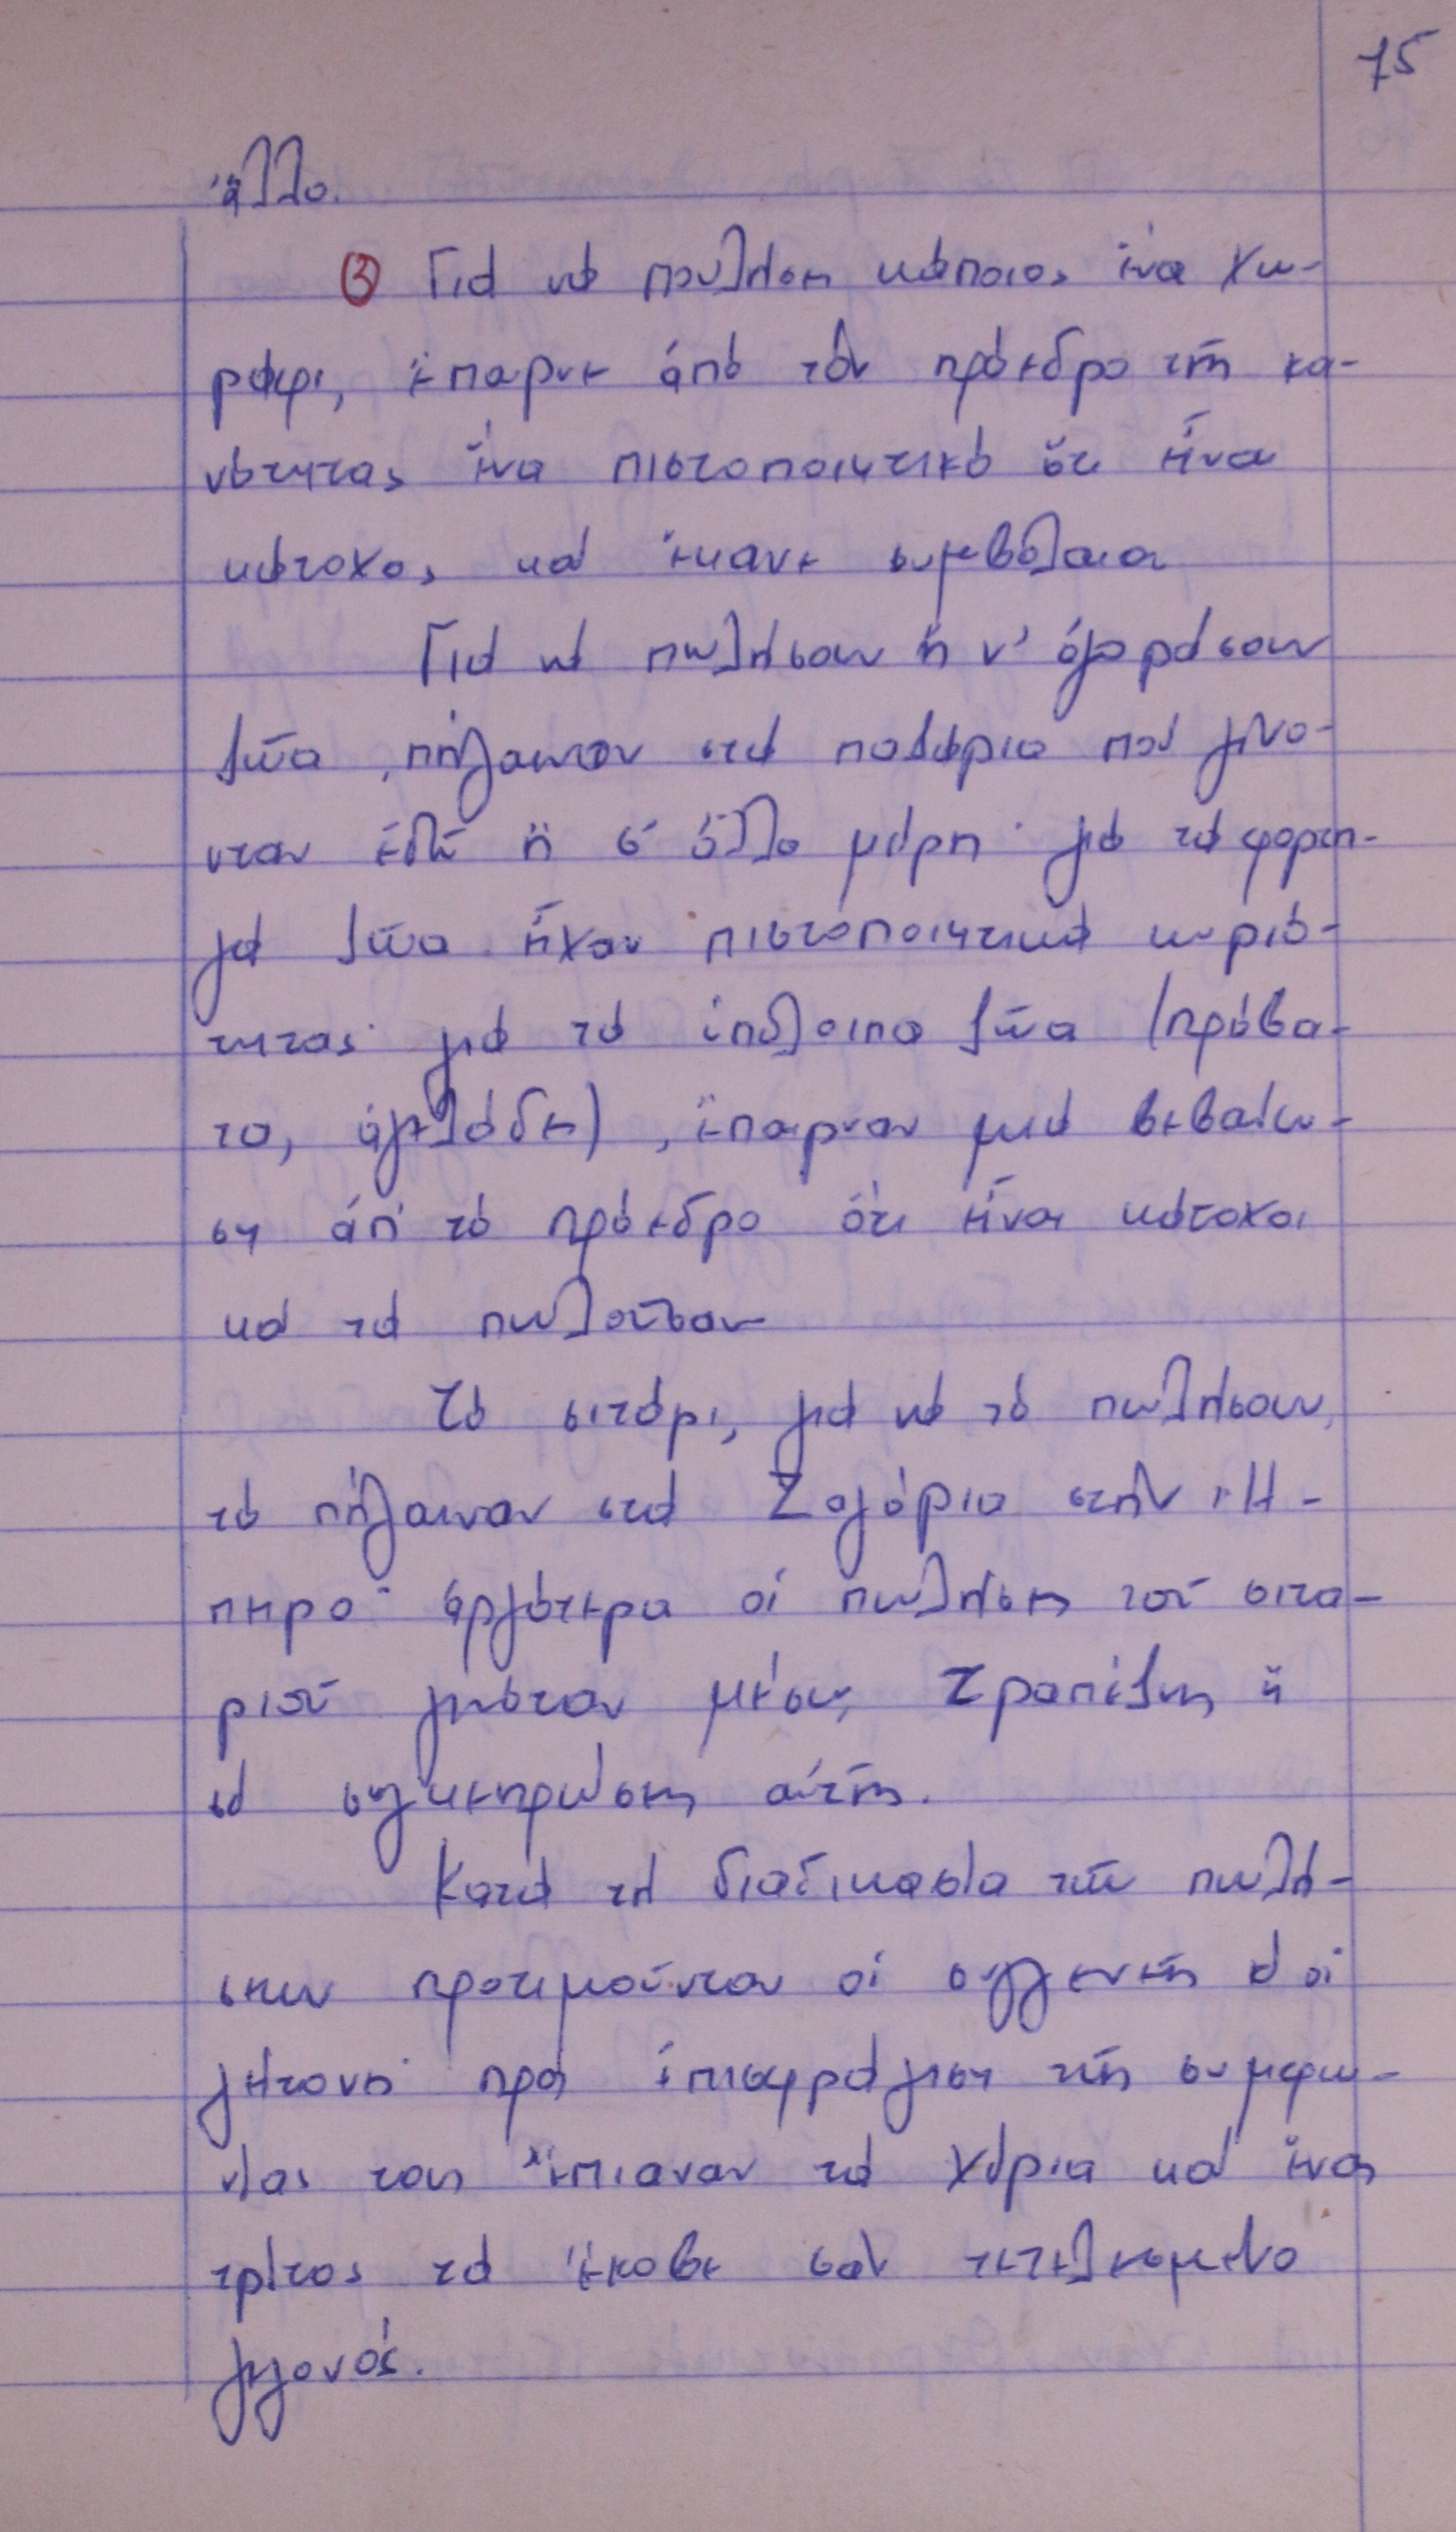 75
ἄλλο.
③ Γιά νά πουλήσῃ κάποιος ἕνα χω-
ράφι, ἔπαιρνε ἀπό τόν πρόεδρο τῆς κοι-
νότητας ἕνα πιστοποιητικό ὅτι εἶναι
κάτοχος καί ἔκανε συμβόλαιο
Γιά νά πωλήσουν ἤ ν' ἀγοράσουν
ζῶα, πήγαιναν στά παζάρια πού γίνο-
νταν ἐδῶ ἤ σ' ἄλλα μέρη· γιά τά φορτη-
γά ζῶα εἶχαν πιστοποιητικά κυριό-
τητας· γιά τά ὑπόλοιπα ζῶα (πρόβα-
τα, ἀγελάδες), ἔπαιρναν μιά βεβαίω-
ση ἀπ' τό πρόεδρο ὅτι εἶναι κάτοχοι
καί τά πωλοῦσαν
Τό σιτάρι, γιά νά τό πωλήσουν,
τό πήγαιναν στά Ζαγόρια στήν Ἤ-
πειρο· ἀργότερα οἱ πωλήσεις τοῦ σιτα-
ριοῦ γινόταν μέσω Τραπέζης ἤ
σέ συγκεντρώσεις αὐτῆς.
Κατά τή διαδικασία τῶν πωλή-
σεων προτιμοῦνταν οἱ συγγενεῖς κ' οἱ
γείτονες· πρός ἐπισφράγιση τῆς συμφω-
νίας τους ἔπιαναν τά χέρια καί ἕνας
τρίτος τά ἔκοβε σάν τετελεσμένο
γεγονός.